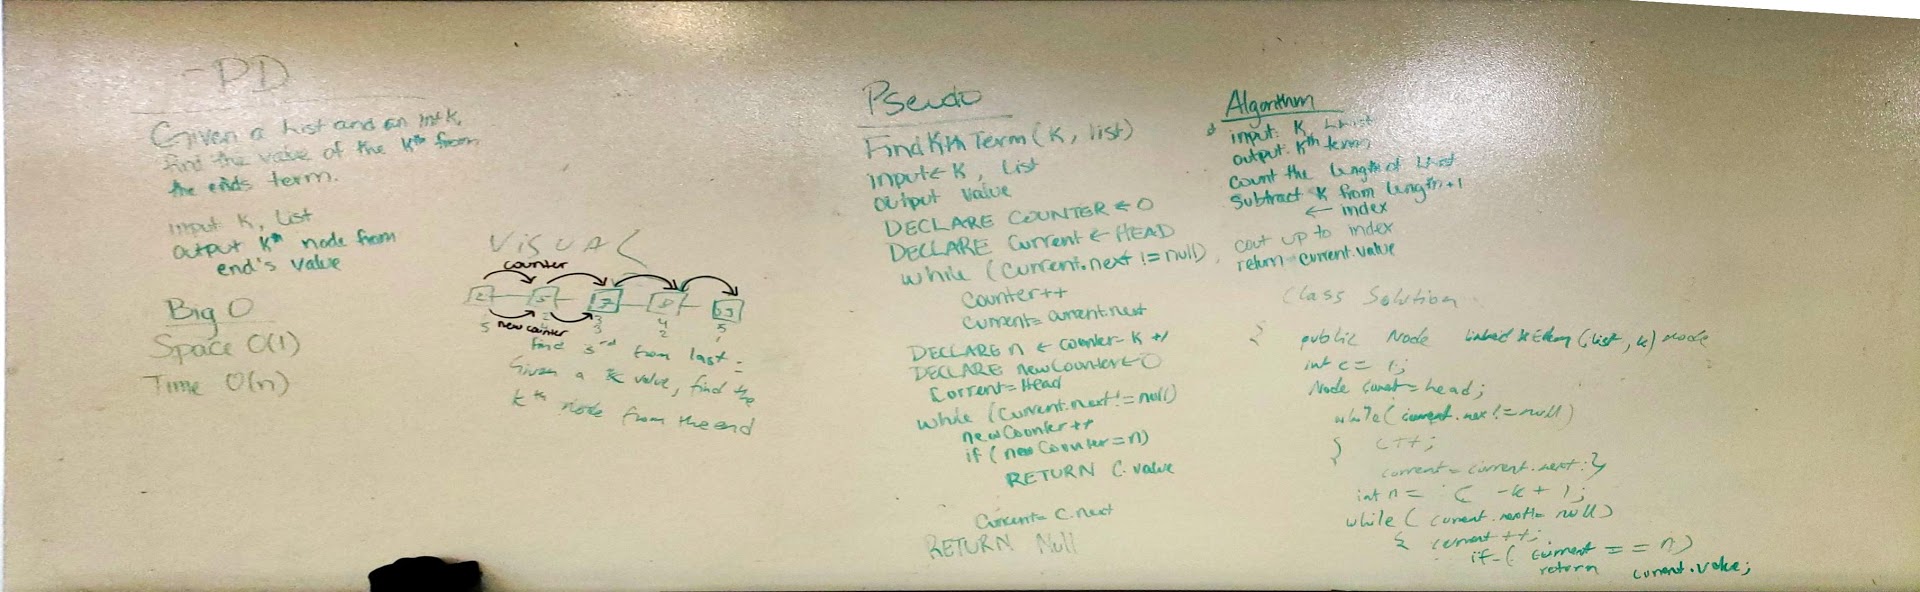 - PD
Given a list and an int k,
find the value of the kth from
the ends term.
input K, List
output Kth node from
end's value
Big O
Space O(1)
Time O(n)
VISUAL
counter
2 5 7 8 99
5 4 3 2 1
new counter
find 3rd from last =
Given a k value, find the
kth node from the end
Pseudo
FindKthTerm(K, list)
input ← K, List
output value
DECLARE COUNTER ← 0
DECLARE Current ← HEAD
while (Current.next != null)
Counter++
Current = current.next
DECLARE n ← counter - K +1
DECLARE newCounter ← 0
Current = Head
while (Current.next != null)
newCounter++
if (newCounter = n)
RETURN C.value
Current = C.next
RETURN Null
Algorithm
input: K, LList
output: Kth term
count the length of LList
Subtract K from length + 1
← index
cout up to index
return current.value
Class Solution
{ public Node (list, k) node
int c = 1;
Node current = head;
while (current.nex != null)
{ c++;
current = current.next; }
int n = c - k + 1;
while ( current.next != null)
{ current ++;
if ( current == n)
return current.value;